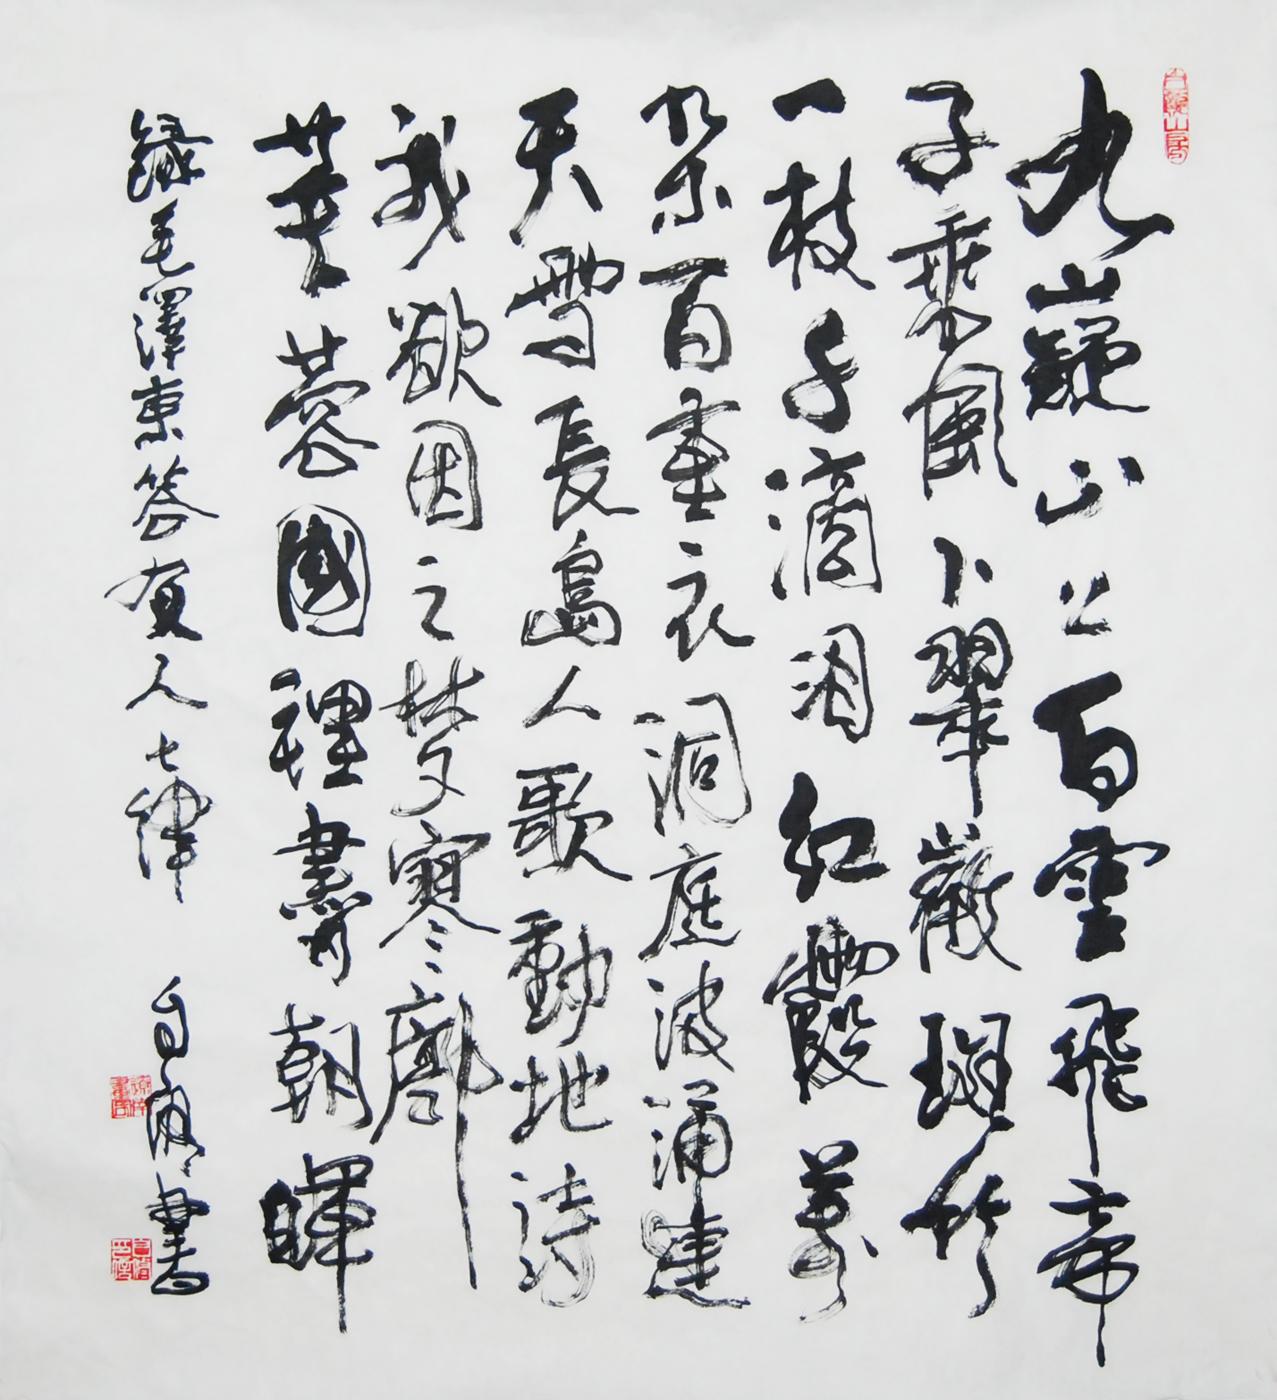 九嶷山上白雲飛帝
子乘風下翠微斑竹
一枝千滴泪紅霞萬
朵百重衣洞庭波涌連
天雪長島人歌動地詩
我欲因之夢寥廓
芙蓉國裡盡朝暉
錄毛澤東答友人七律 自書